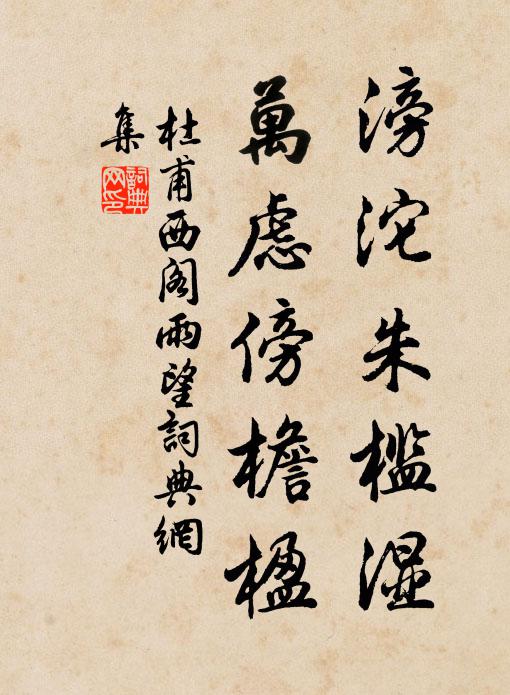 滂沱朱檻湿
萬慮傍檐楹
杜甫西阁雨望詞典網
集
詞典
网印